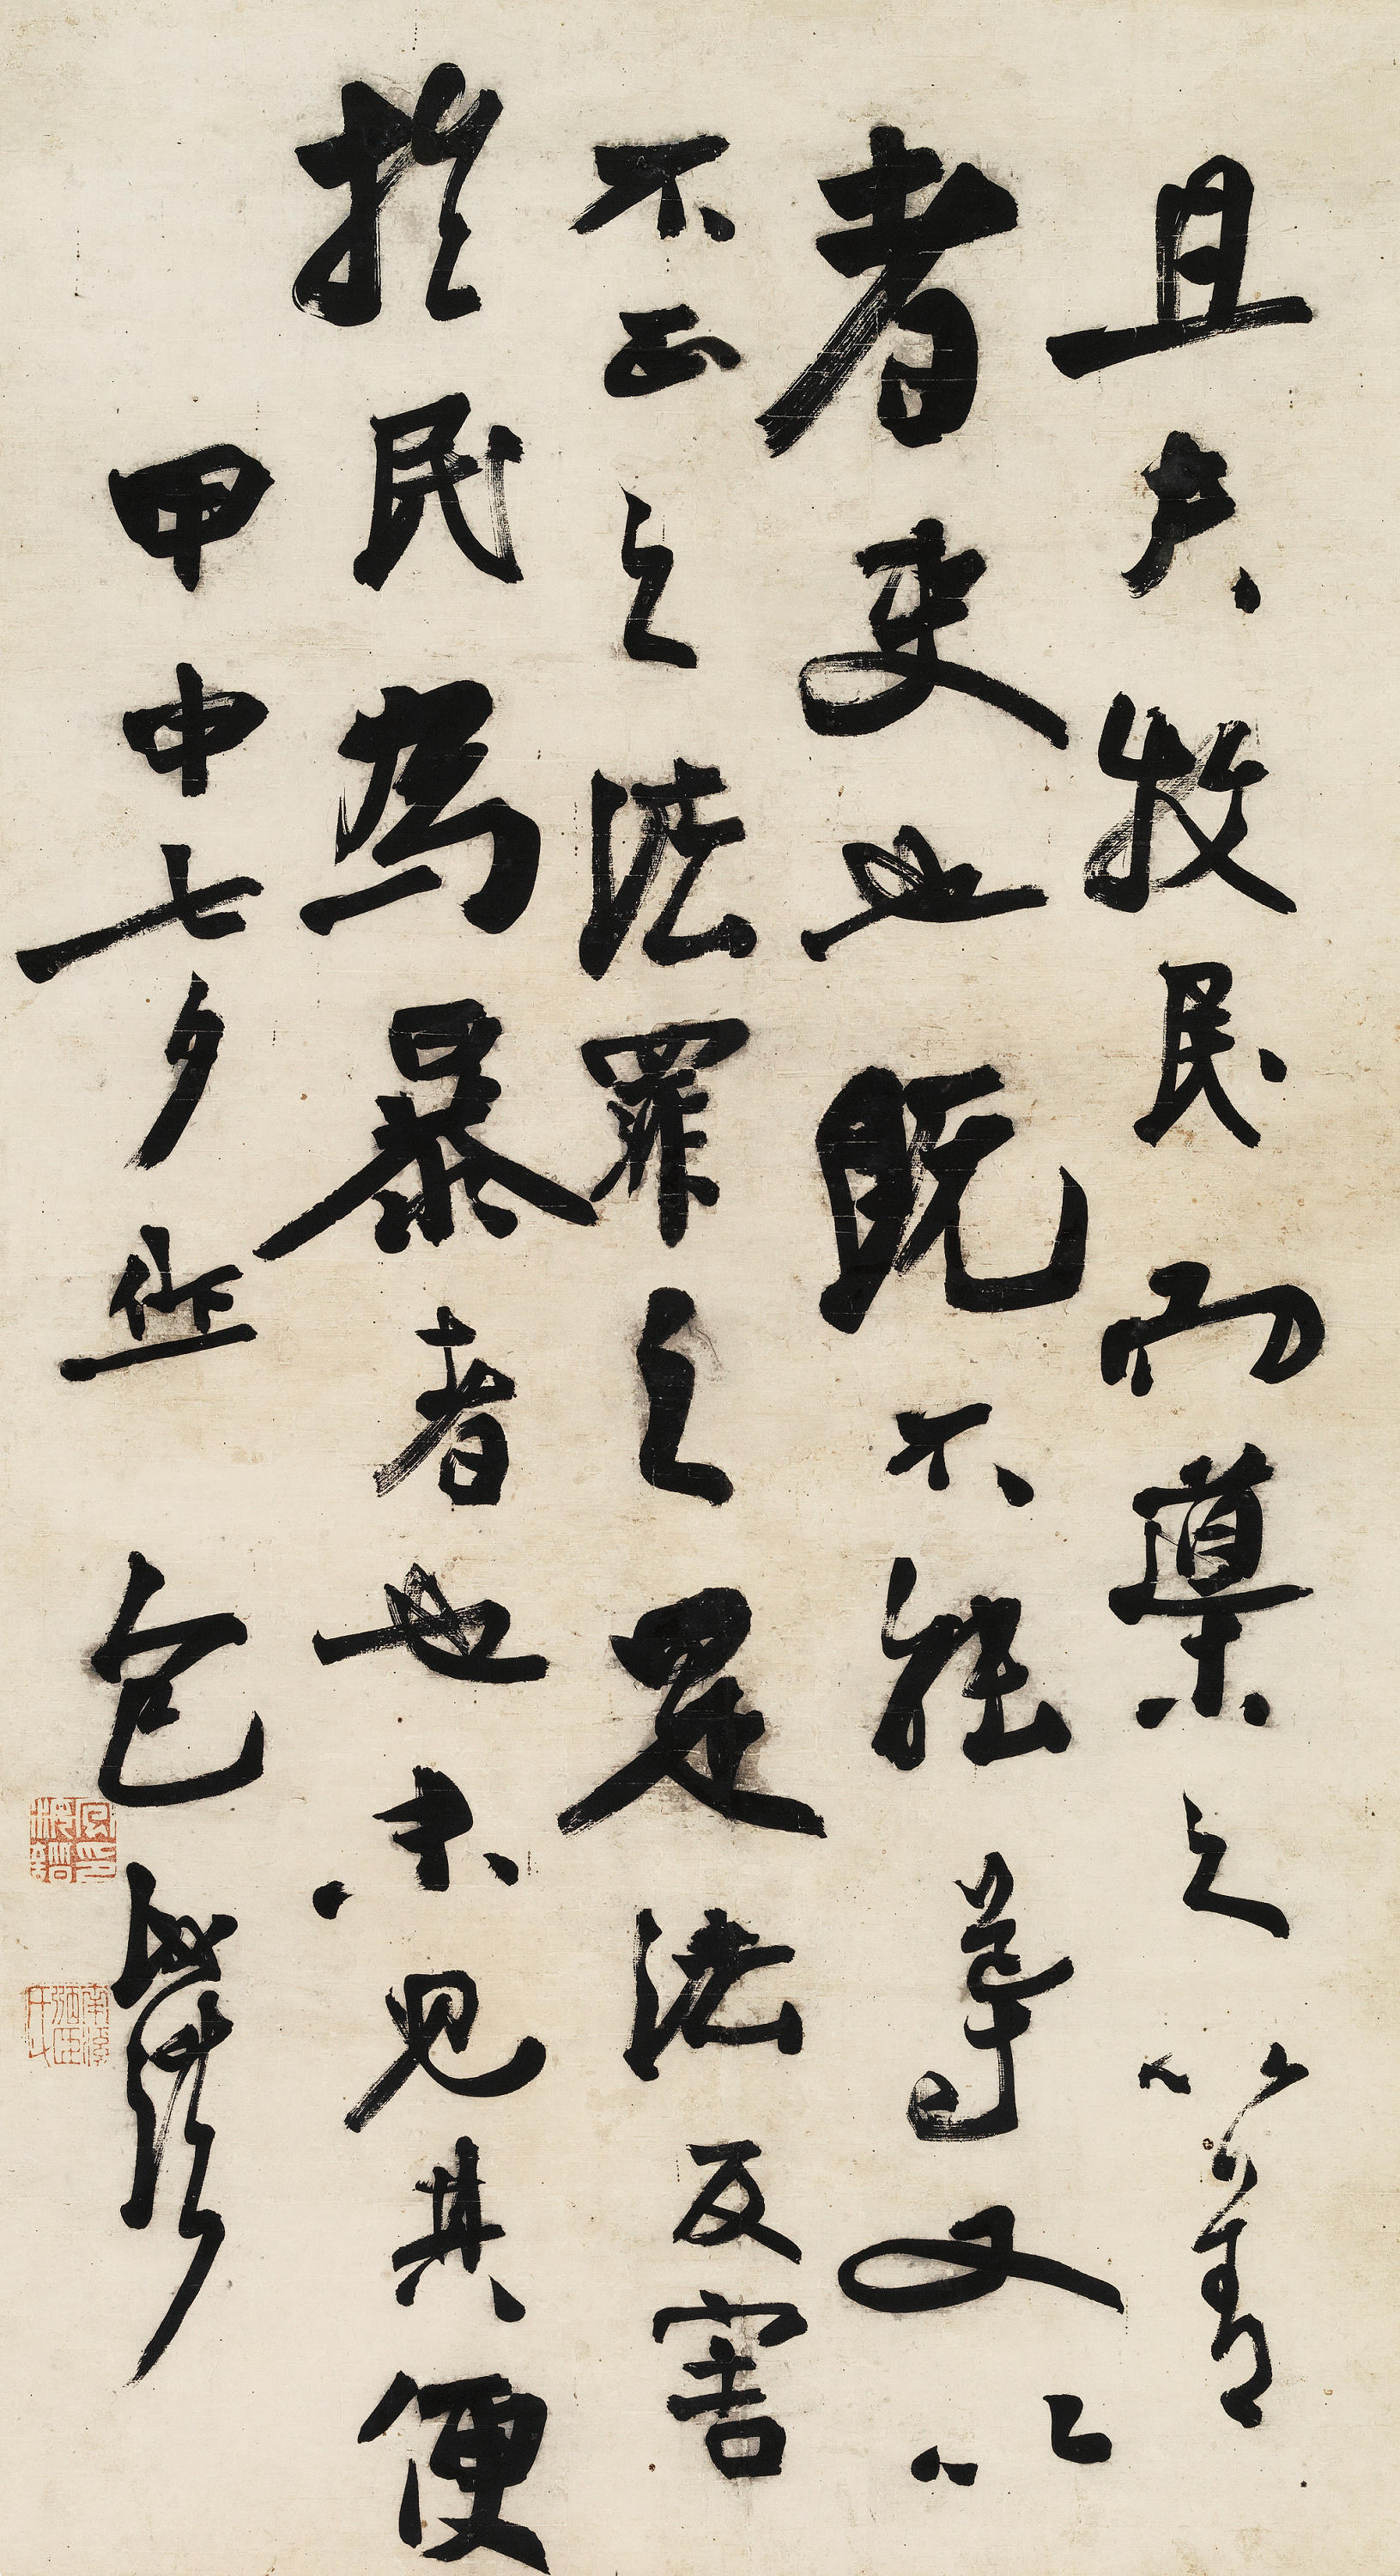 且夫牧民而導之以善
者吏也既不能導又以
不正之法罪之是法反害
於民為暴者也未見其便
甲申七夕